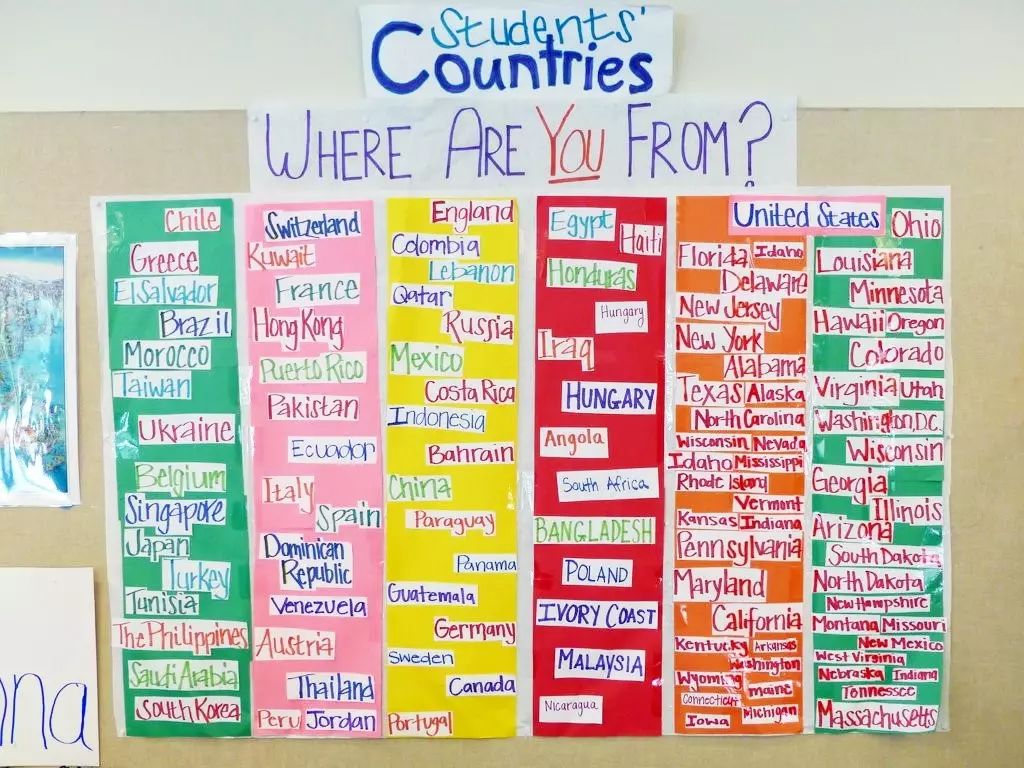 Students'
Countries
WHERE ARE YOU FROM?
Chile
Greece
El Salvador
Brazil
Morocco
Taiwan
Ukraine
Belgium
Singapore
Japan
Turkey
Tunisia
The Philippines
Saudi Arabia
South Korea
Switzerland
Kuwait
France
Hong Kong
Puerto Rico
Pakistan
Ecuador
Italy
Spain
Dominican
Republic
Venezuela
Austria
Thailand
Peru Jordan
England
Colombia
Lebanon
Qatar
Russia
Mexico
Costa Rica
Indonesia
Bahrain
China
Paraguay
Panama
Guatemala
Germany
Sweden
Canada
Portugal
Egypt
Haiti
Honduras
Hungary
Iraq
HUNGARY
Angola
South Africa
BANGLADESH
POLAND
IVORY COAST
MALAYSIA
Nicaragua
United States
Florida Idaho
Delaware
New Jersey
New York
Alabama
Texas Alaska
North Carolina
Wisconsin Nevada
Idaho Mississippi
Rhode Island
Vermont
Kansas Indiana
Pennsylvania
Maryland
California
Kentucky Arkansas
Washington
Wyoming
maine
Connecticut
Michigan
Iowa
Ohio
Louisiana
Minnesota
Hawaii Oregon
Colorado
Virginia Utah
Washington, D.C.
Wisconsin
Georgia
Illinois
Arizona
South Dakota
North Dakota
New Hampshire
Montana Missouri
New Mexico
West Virginia
Nebraska Indiana
Tennessee
Massachusetts
na